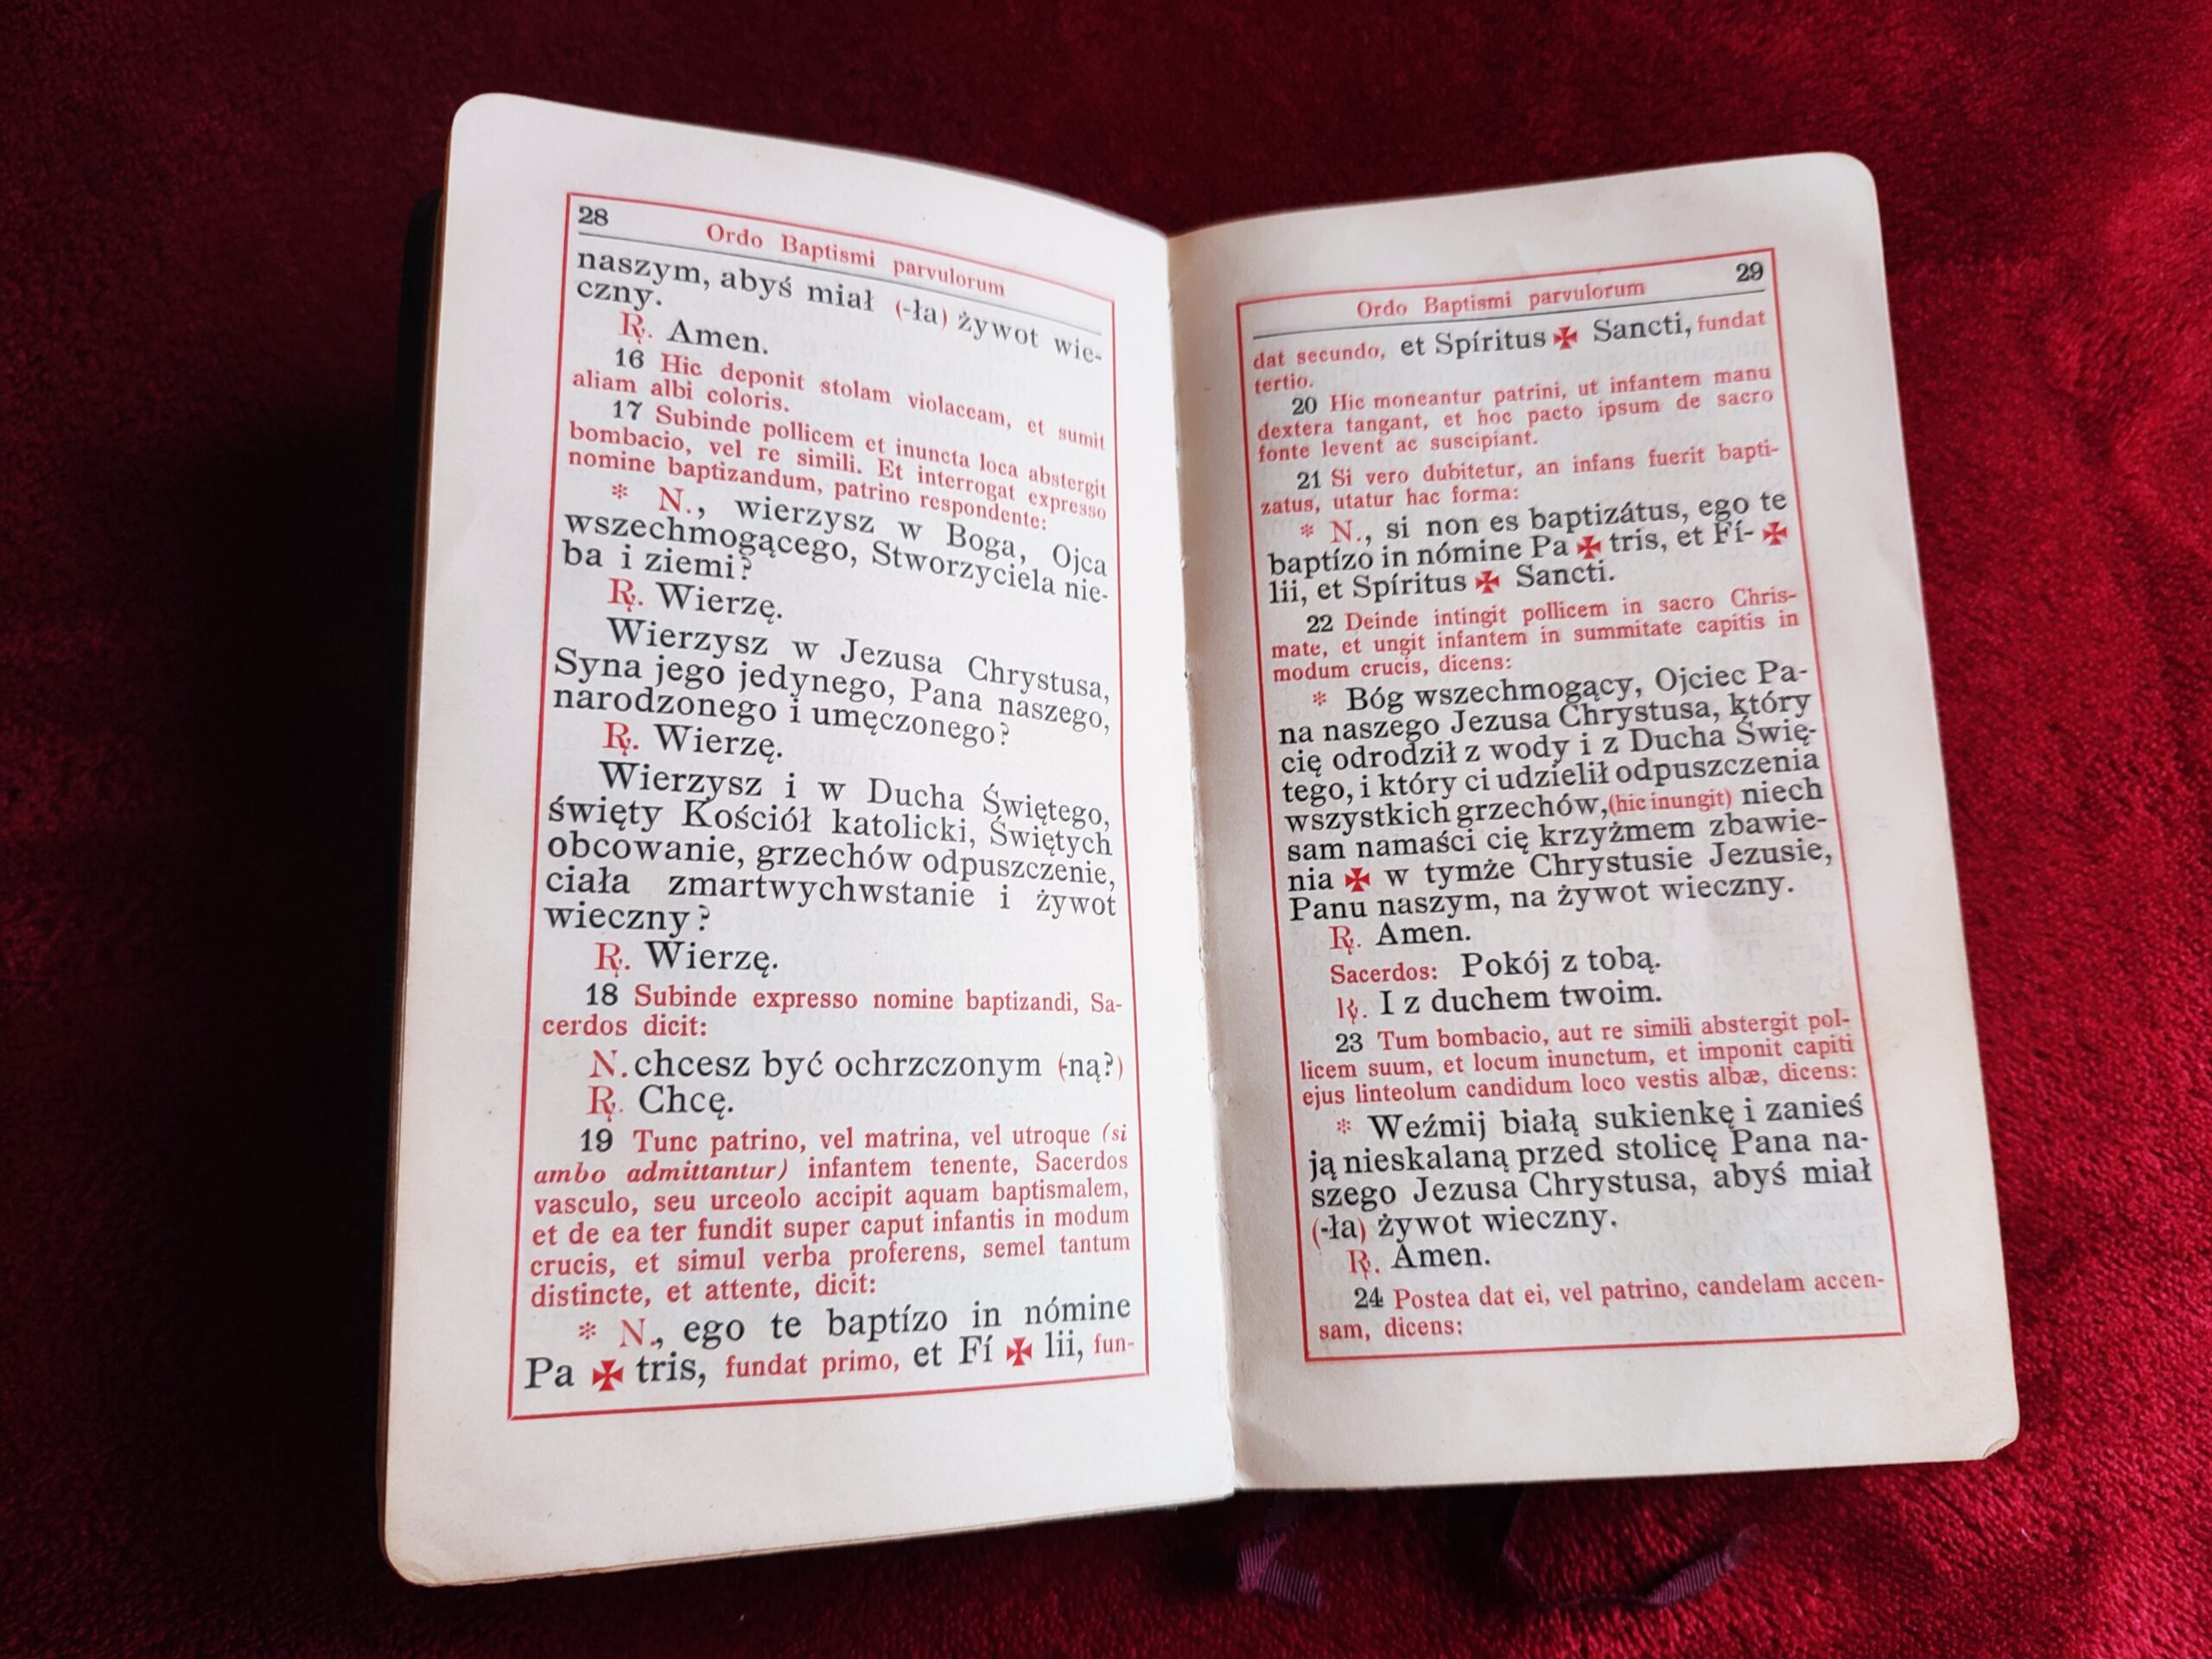 28
Ordo Baptismi parvulorum
naszym, abyś miał (-ła) żywot wie-
czny.
℟. Amen.
16 Hic deponit stolam violaceam, et sumit
aliam albi coloris.
17 Subinde pollicem et inuncta loca abstergit
bombacio, vel re simili. Et interrogat expresso
nomine baptizandum, patrino respondente:
* N., wierzysz w Boga, Ojca
wszechmogącego, Stworzyciela nie-
ba i ziemi?
℟. Wierzę.
Wierzysz w Jezusa Chrystusa,
Syna jego jedynego, Pana naszego,
narodzonego i umęczonego?
℟. Wierzę.
Wierzysz i w Ducha Świętego,
święty Kościół katolicki, Świętych
obcowanie, grzechów odpuszczenie,
ciała zmartwychwstanie i żywot
wieczny?
℟. Wierzę.
18 Subinde expresso nomine baptizandi, Sa-
cerdos dicit:
N. chcesz być ochrzczonym (-ną?)
℟. Chcę.
19 Tunc patrino, vel matrina, vel utroque (si
ambo admittantur) infantem tenente, Sacerdos
vasculo, seu urceolo accipit aquam baptismalem,
et de ea ter fundit super caput infantis in modum
crucis, et simul verba proferens, semel tantum
distincte, et attente, dicit:
* N., ego te baptízo in nómine
Pa ✠ tris, fundat primo, et Fí ✠ lii, fun-
Ordo Baptismi parvulorum
29
dat secundo, et Spíritus ✠ Sancti, fundat
tertio.
20 Hic moneantur patrini, ut infantem manu
dextera tangant, et hoc pacto ipsum de sacro
fonte levent ac suscipiant.
21 Si vero dubitetur, an infans fuerit bapti-
zatus, utatur hac forma:
* N., si non es baptizátus, ego te
baptízo in nómine Pa ✠ tris, et Fí- ✠
lii, et Spíritus ✠ Sancti.
22 Deinde intingit pollicem in sacro Chris-
mate, et ungit infantem in summitate capitis in
modum crucis, dicens:
* Bóg wszechmogący, Ojciec Pa-
na naszego Jezusa Chrystusa, który
cię odrodził z wody i z Ducha Świę-
tego, i który ci udzielił odpuszczenia
wszystkich grzechów, (hic inungit) niech
sam namaści cię krzyżmem zbawie-
nia ✠ w tymże Chrystusie Jezusie,
Panu naszym, na żywot wieczny.
℟. Amen.
Sacerdos: Pokój z tobą.
℟. I z duchem twoim.
23 Tum bombacio, aut re simili abstergit pol-
licem suum, et locum inunctum, et imponit capiti
ejus linteolum candidum loco vestis albæ, dicens:
* Weźmij białą sukienkę i zanieś
ją nieskalaną przed stolicę Pana na-
szego Jezusa Chrystusa, abyś miał
(-ła) żywot wieczny.
℟. Amen.
24 Postea dat ei, vel patrino, candelam accen-
sam, dicens: